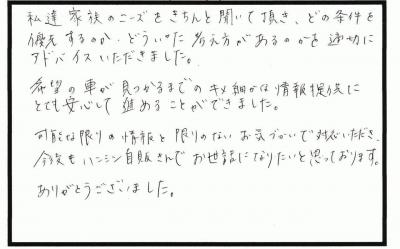 私達家族のニーズをきちんと聞いて頂き、どの条件を
優先するのか、どういった考え方があるのかを適切に
アドバイスいただきました。
希望の車が見つかるまでのキメ細かな情報提供に
とても安心して進めることができました。
可能な限りの情報と限りのないお気づかいで対応いただき、
今後もハンシン自販さんでお世話になりたいと思っております。
ありがとうございました。